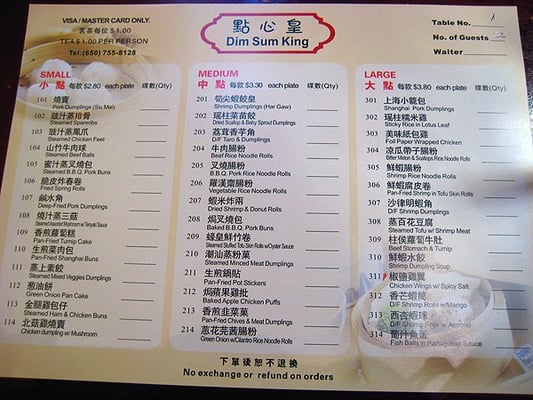 VISA / MASTER CARD ONLY.
茗茶每位 $ 1.00
TEA $ 1.00 PER PERSON
Tel:(650) 755-8128
點心皇
Dim Sum King
Table No.
No. of Guests
Waiter
SMALL
小 點 每款 $2.80 each plate 碟數(Qty)
101 燒賣
Pork Dumplings (Siu Mai)
102 豉汁蒸排骨
Steamed Spareribs
103 豉汁蒸鳳爪
Steamed Chicken Feet
104 山竹牛肉球
Steamed Beef Balls
105 蜜汁蒸叉燒包
Steamed B.B.Q. Pork Buns
106 脆皮炸春卷
Fried Spring Rolls
107 鹹水角
Deep-Fried Pork Dumplings
108 燒汁蒸三菇
Steamed Assorted Mushroom w/ Teriyaki Sauce
109 香煎蘿蔔糕
Pan-Fried Turnip Cake
110 生煎菜肉包
Pan-Fried Shanghai Buns
111 蒸上素餃
Steamed Mixed Veggies Dumplings
112 葱油餅
Green Onion Pan Cake
113 金腿雞包仔
Steamed Ham & Chicken Buns
114 北菇雞燒賣
Chicken dumpling w/ Mushroom
MEDIUM
中 點 每款 $3.30 each plate 碟數(Qty)
201 筍尖蝦餃皇
Shrimp Dumplings (Har Gaw)
202 瑤柱菜苗餃
Dried Scallop & Baby Sprout Dumplings
203 荔茸香芋角
D/F Taro & Dumplings
204 牛肉腸粉
Beef Rice Noodle Rolls
205 叉燒腸粉
B.B.Q. Pork Rice Noodle Rolls
206 羅漢齋腸粉
Vegetable Rice Noodle Rolls
207 蝦米炸兩
Dried Shrimp & Donut Rolls
208 焗叉燒包
Baked B.B.Q. Pork Buns
209 蠔皇鮮竹卷
Steamed Stuffed Tofu Skin Rolls w/Oyster Sauce
210 潮汕蒸粉菓
Steamed Minced Meat Dumplings
211 生煎鍋貼
Pan-Fried Pot Stickers
212 焗蘋果雞批
Baked Apple Chicken Puffs
213 香煎韭菜菓
Pan-Fried Chives & Meat Dumplings
214 葱花芫茜腸粉
Green Onion w/Cilantro Rice Noodle Rolls
LARGE
大 點 每款 $3.80 each plate 碟數(Qty)
301 上海小籠包
Shanghai Pork Dumplings
302 瑤柱糯米雞
Sticky Rice in Lotus Leaf
303 美味紙包雞
Foil Paper Wrapped Chicken
304 凉瓜帶子腸粉
Bitter Melon & Scallops Rice Noodle Rolls
305 鮮蝦腸粉
Shrimp Rice Noodle Rolls
306 鮮蝦腐皮卷
Pan-Fried Shrimp in Tofu Skin Rolls
307 沙律明蝦角
D/F Shrimp Dumplings
308 蒸百花豆腐
Steamed Tofu w/ Shrimp Meat
309 柱侯蘿蔔牛肚
Beef Stomach & Turnip
310 鮮蝦水餃
Shrimp Dumpling Soup
311 椒鹽雞翼
Chicken Wings w/ Spicy Salt
312 香芒蝦筒
D/F Shrimp Rolls w/Mango
313 西杏蝦球
D/F Shrimp
314 葡汁魚蛋
Fish Balls in Portuguese Sauce
下單後恕不退換
No exchange or refund on orders